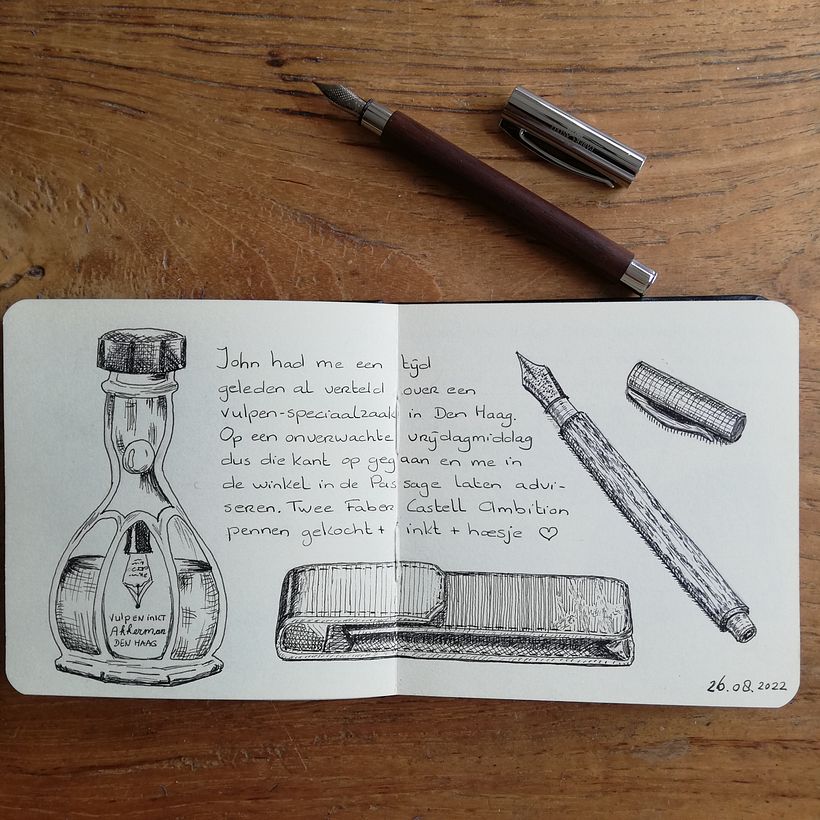 John had me een tijd
geleden al verteld over een
vulpen-speciaalzaak in Den Haag.
Op een onverwachte vrijdagmiddag
dus die kant op gegaan en me in
de winkel in de Passage laten advi-
seren. Twee Faber Castell Ambition
pennen gekocht + inkt + hoesje ♡
vulpen inkt
Akkerman
DEN HAAG
26.08.2022